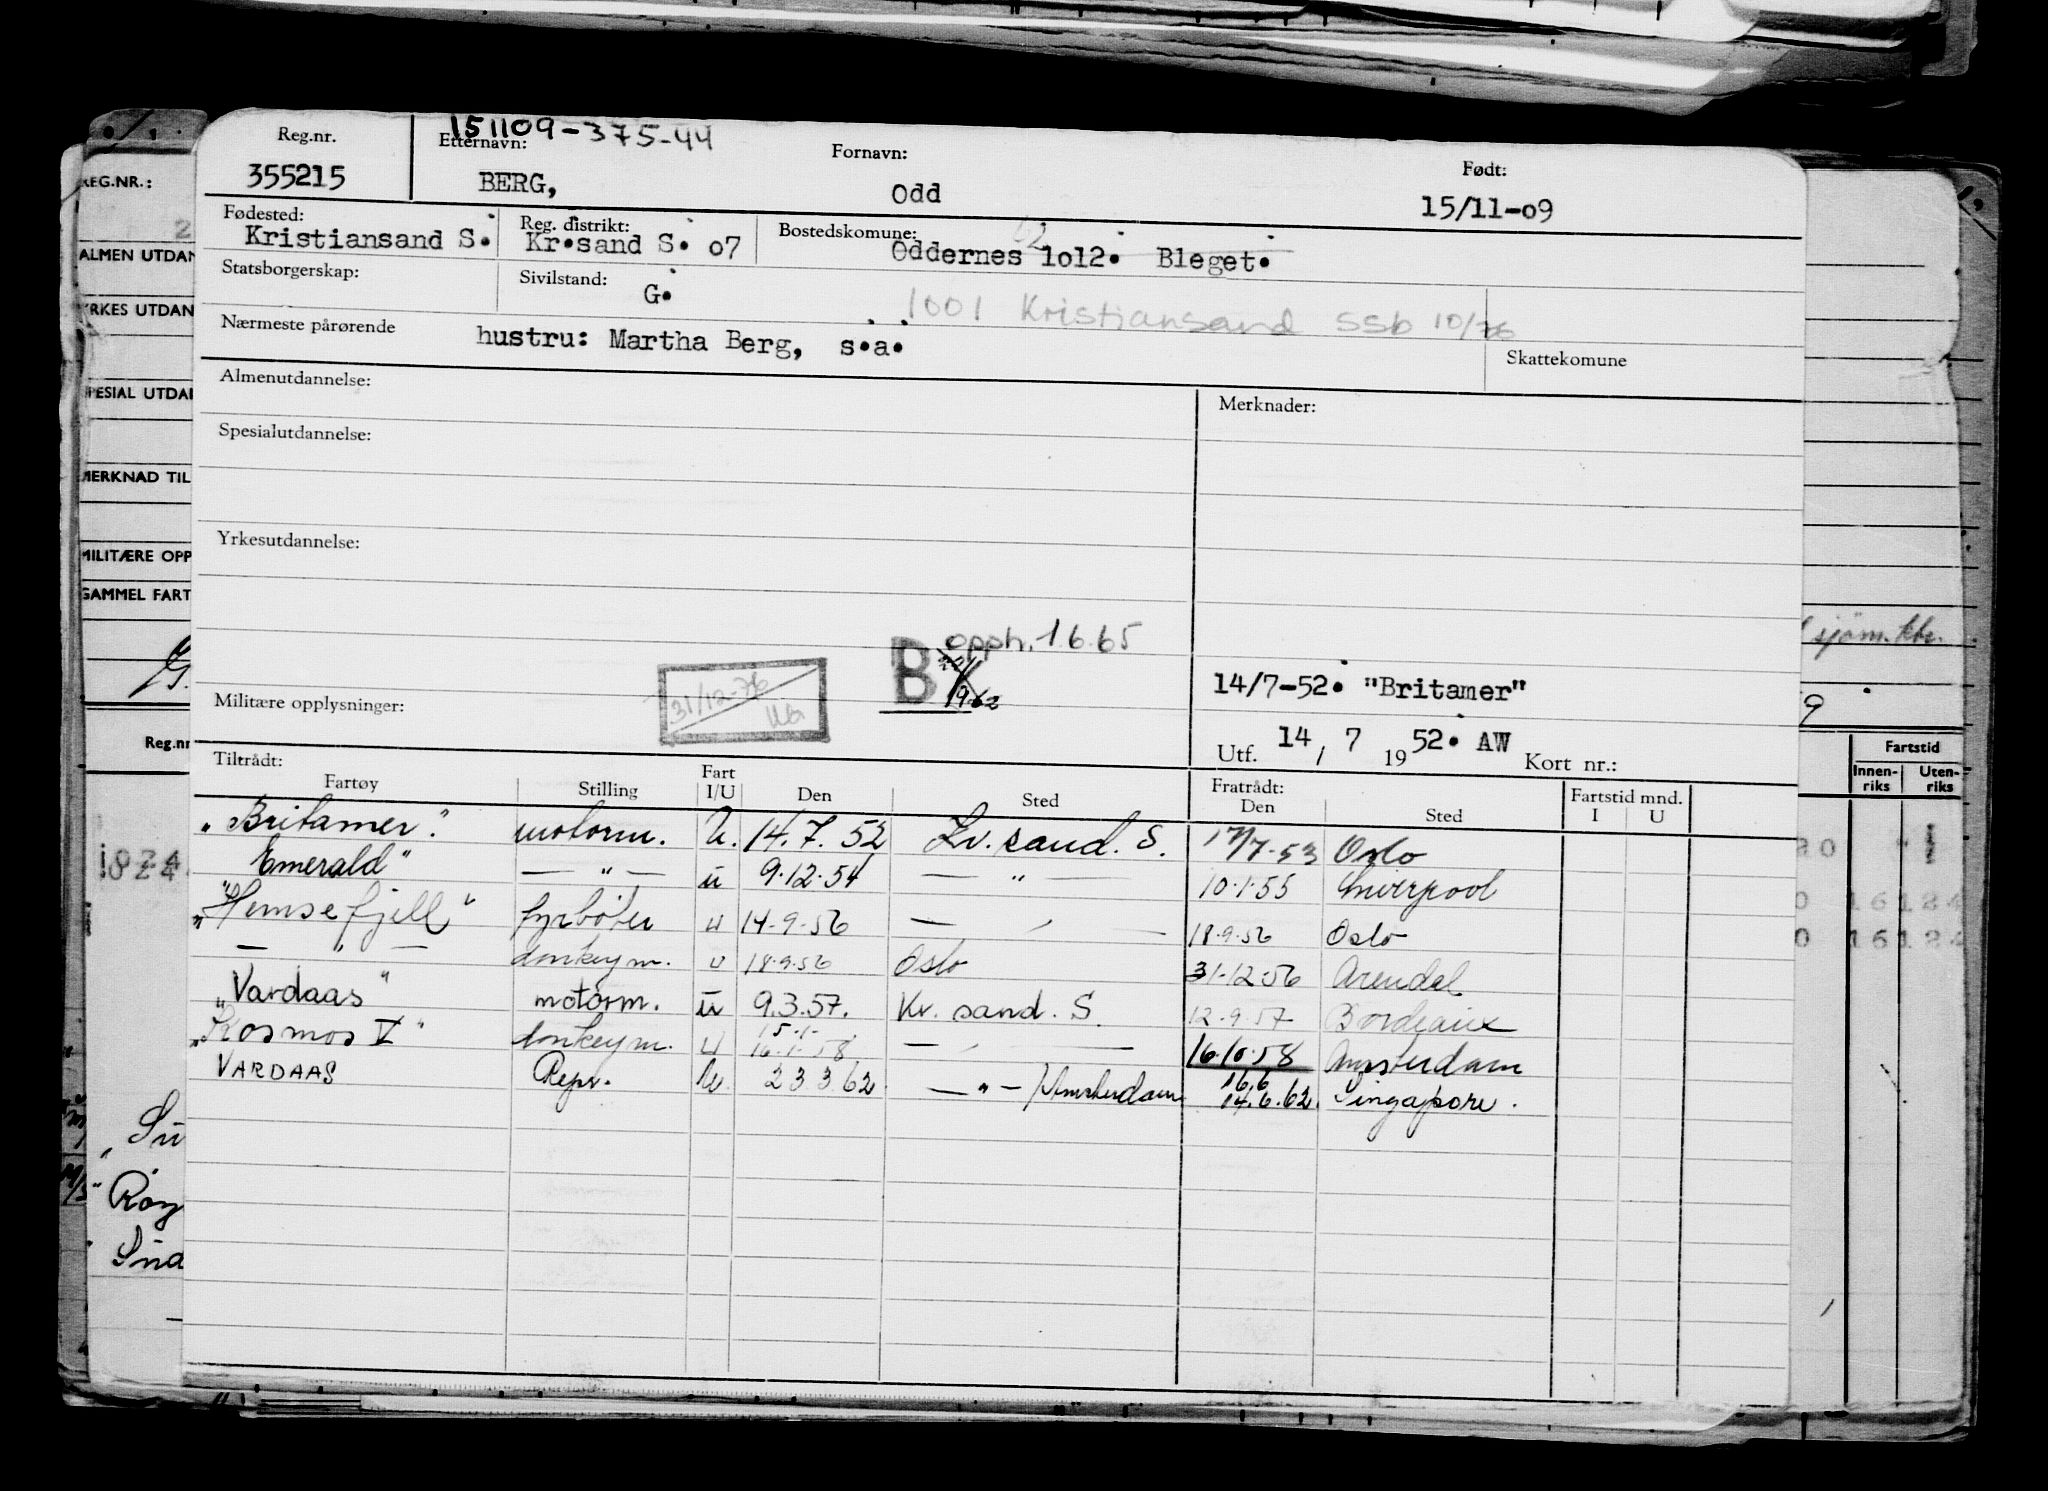 151109-375-44
Reg.nr. Etternavn: Fornavn: Født:
355215 BERG, Odd 15/11-o9
Fødested: Reg. distrikt: Bostedskomune:
Kristiansand S. Kr.sand S. o7 Oddernes 1o12. Bleget.
Statsborgerskap: Sivilstand: G.
1001 Kristiansand SSb 10/76
Nærmeste pårørende hustru: Martha Berg, s.a.
Skattekomune
Almenutdannelse: Merknader:
Spesialutdannelse:
Yrkesutdannelse:
opph. 1.6.65
B 1962
31/12-76
14/7-52. "Britamer"
Militære opplysninger:
Utf. 14 / 7 1952. AW Kort nr.:
Tiltrådt: Fratrådt: Fartstid mnd.
Fartøy Stilling Fart I/U Den Sted Den Sted I U
"Britamer". motorm. U. 14.7.52 Kr.sand. S. 17/7.53 Oslo
Emerald" — " — u 9.12.54 — " — 10.1.55 Liverpool
"Hemsefjell" fyrbøter u 14-9-56 — " — 18.9.56 Oslo
— " — donkeym. u 18.9.56 Oslo 31.12.56 Arendal
"Vardaas" motorm. u 9.3.57. Kr. sand. S. 12.9.57 Bordeaux
"Kosmos V" donkeym. u 15.1. 16.1.58 — " — 16.10.58 Amsterdam
VARDAAS Repr. U. 23 3.62 — " — / Amsterdam 16.6 14.6.62. Singapore.
REG.NR.:
ALMEN UTDAN
YRKES UTDAN
SPESIAL UTDA
MERKNAD TIL
MILITÆRE OPP
GAMMEL FART
sjøm.
9
Reg.nr
Fartstid
Innen-riks Uten-riks
Su
Roy